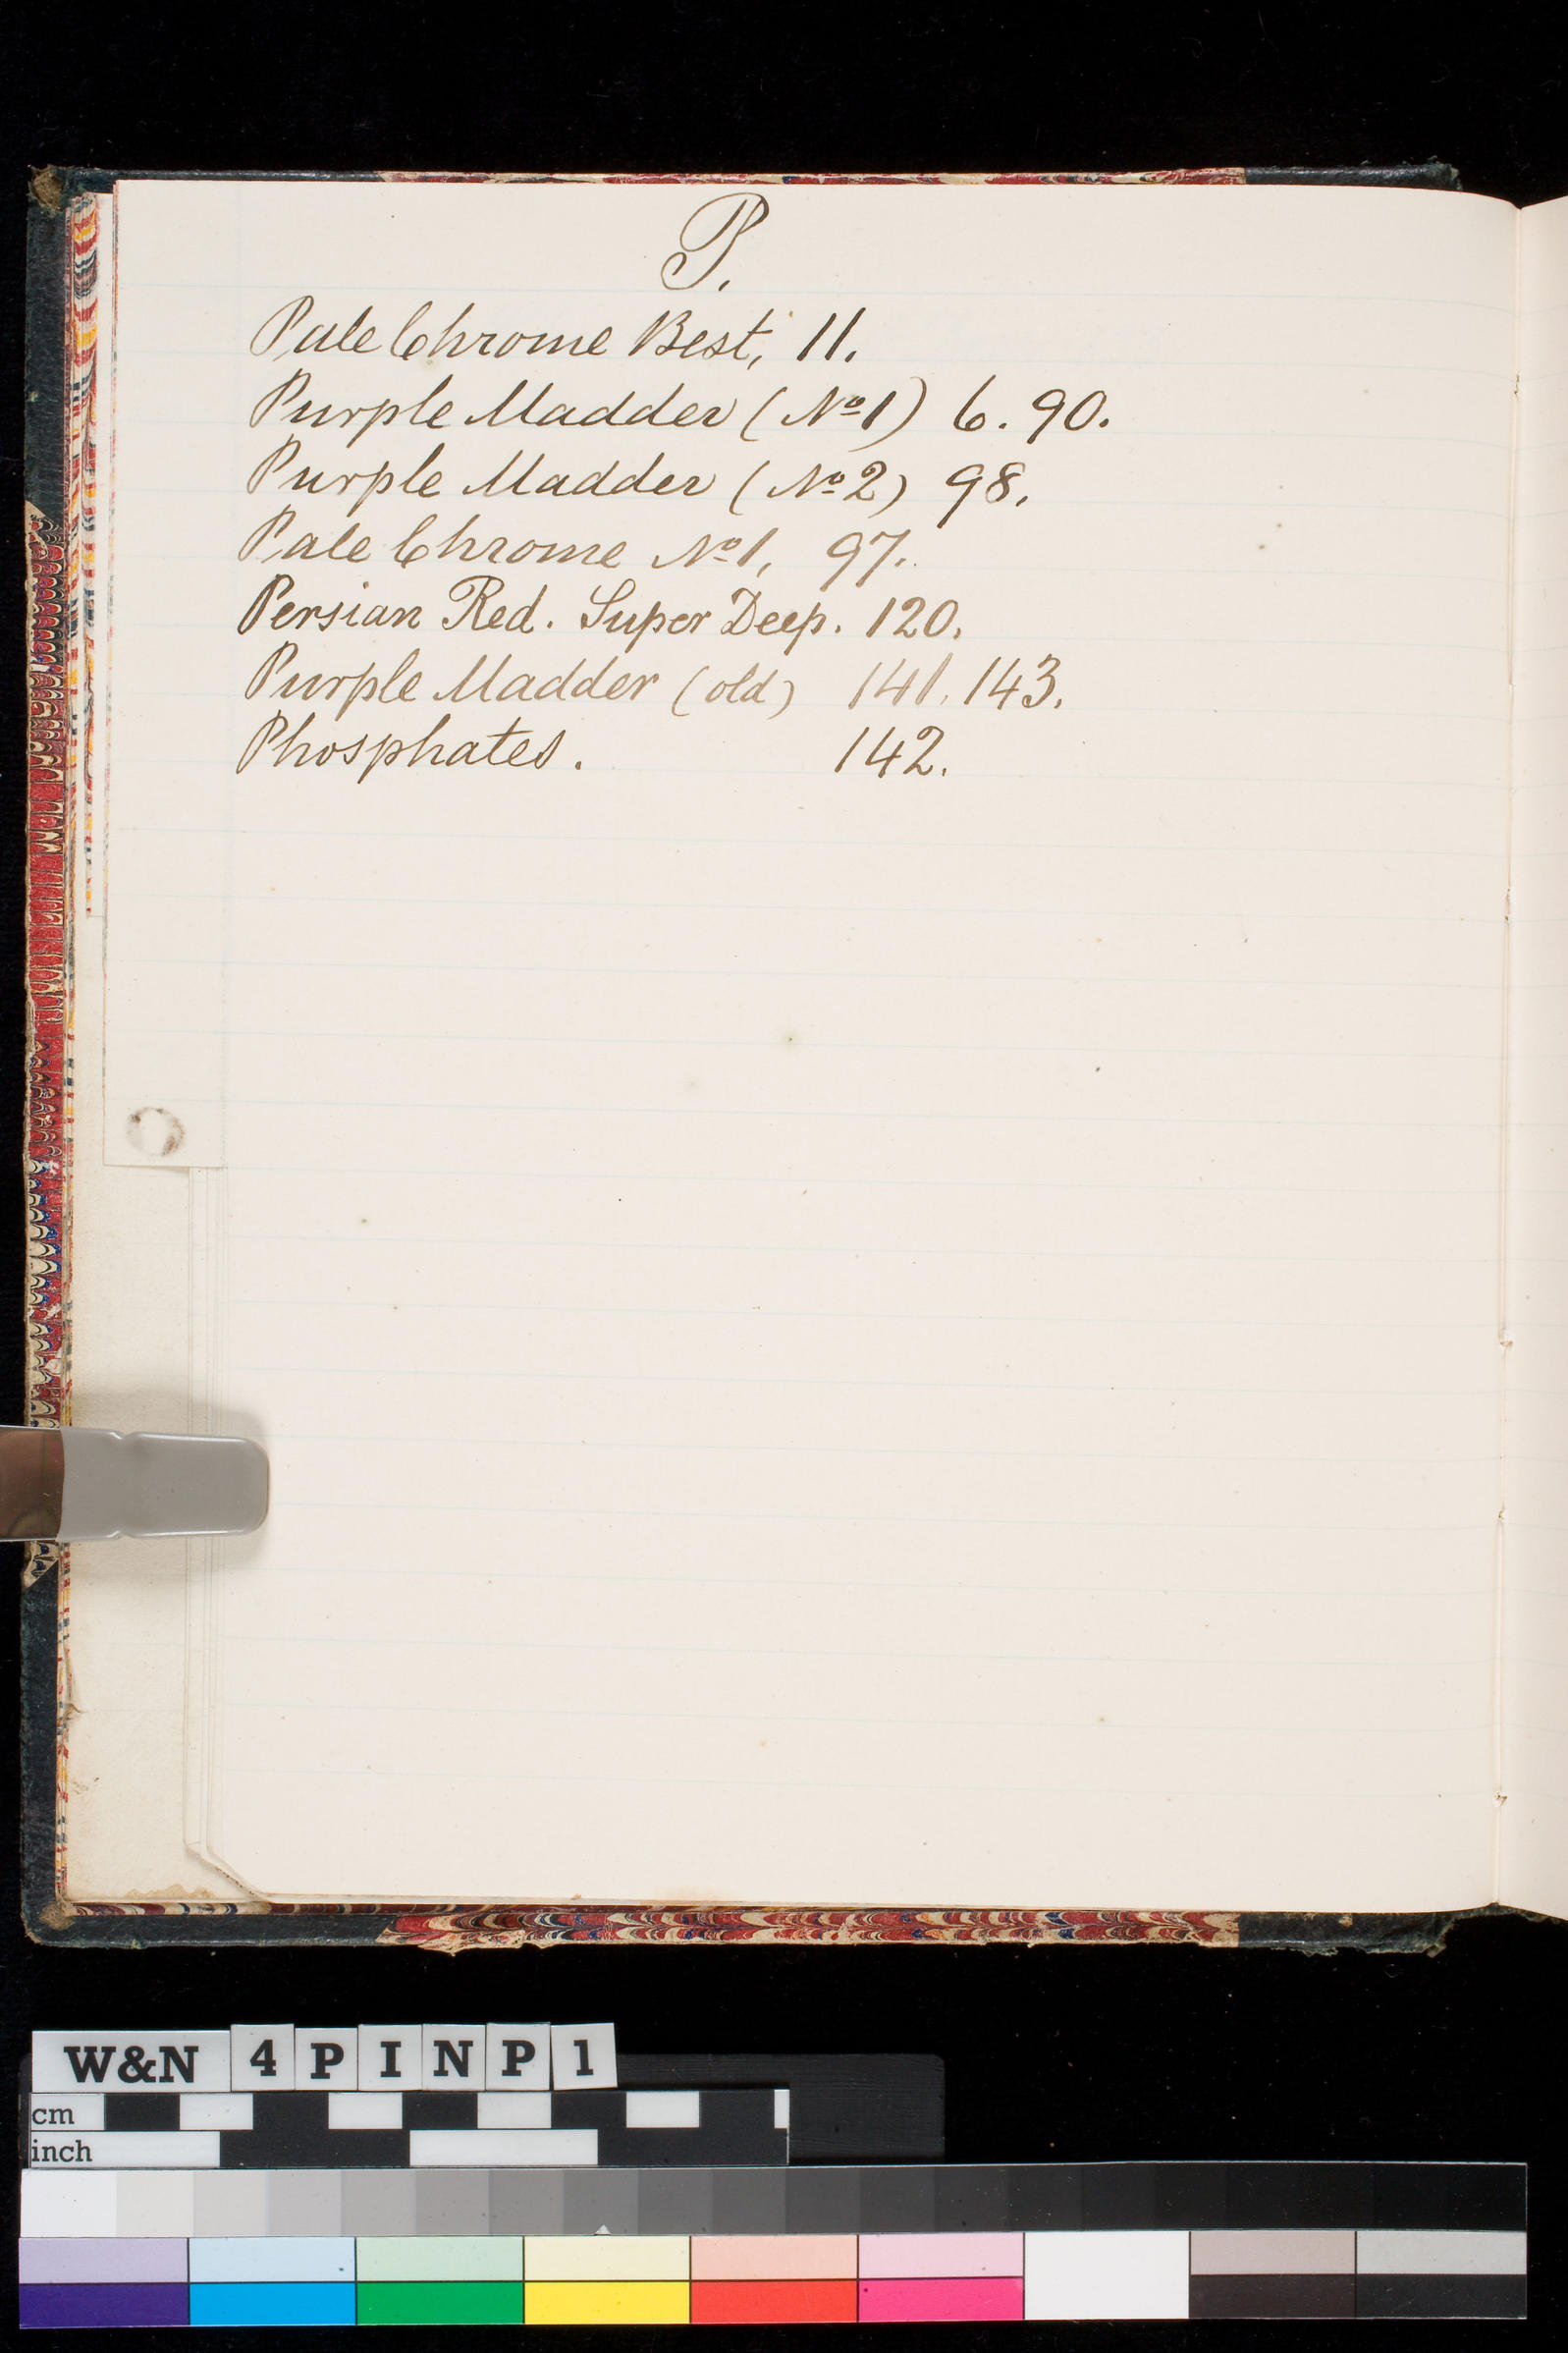 P.
Pale Chrome Best, 11.
Purple Madder (No 1) 6. 90.
Purple Madder (No 2) 98.
Pale Chrome No 1, 97.
Persian Red. Super Deep. 120.
Purple Madder (old) 141. 143.
Phosphates. 142.
W&N 4 P I N P 1
cm
inch